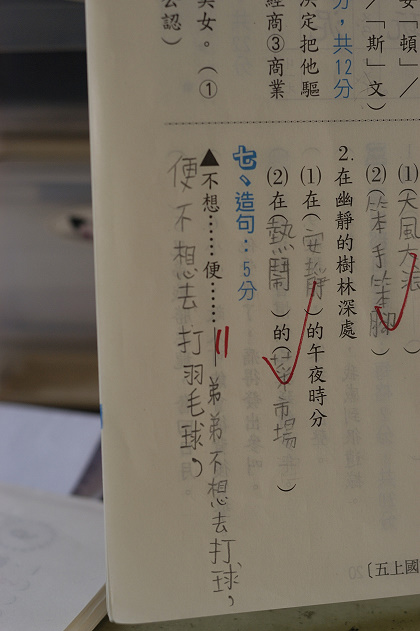 安「頓」／
／「斯」文）
分，共12分
決定把他驅
經商③商業
美女。（①
公認）
(1)（大風大浪）
(2)（笨手笨腳）
2.在幽靜的樹林深處
(1)在（安靜）的午夜時分
(2)在（熱鬧）的（菜市場）
七、造句：5分
▲不想……便……＝弟弟不想去打球，
便不想去打羽毛球，
〔五上國